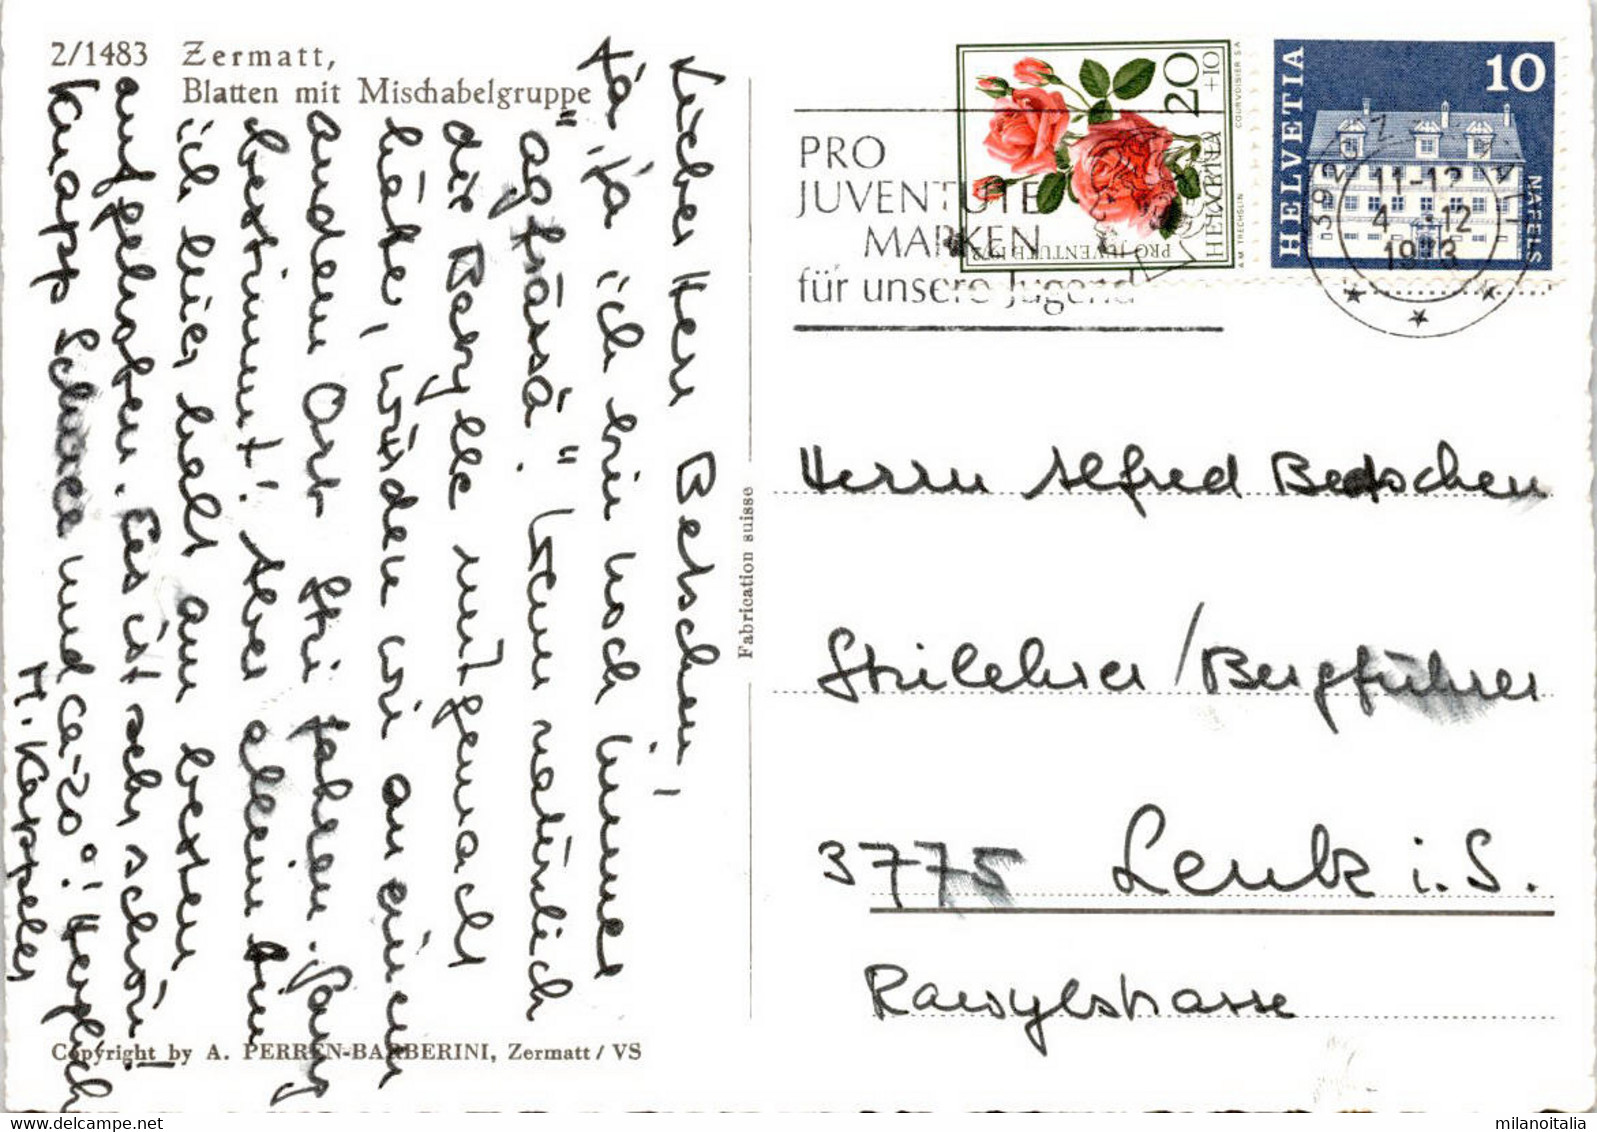 2/1483 Zermatt,
Blatten mit Mischabelgruppe
Lieber Herr Betschen,
Ja, ja ich bin noch immer
"agfrässä". Wenn natürlich
die Bergke mitgemacht
hätte, würden wir an einem
andern Ort Ski fahren. Ganz
bestimmt! Aber allein bin
ich hier halt am besten
aufgehoben. Es ist sehr schön.
Knapp Schnee und ca -20°! Herzlich
H. Kappeler
Fabrication suisse
Copyright by A. PERREN-BARBERINI, Zermatt / VS
PRO
JUVENTUTE
MARKEN
für unsere Jugend
20
+10
HELVETIA
PRO JUVENTUTE 1972
COURVOISIER S A
A M TRECHSLIN
HELVETIA
10
NÄFELS
3920 ZERMATT
11-12
4 - 12
1973
Herrn Alfred Betschen
Skilehrer / Bergführer
3775 Lenk i. S.
Rawylstrasse
milanoitalia